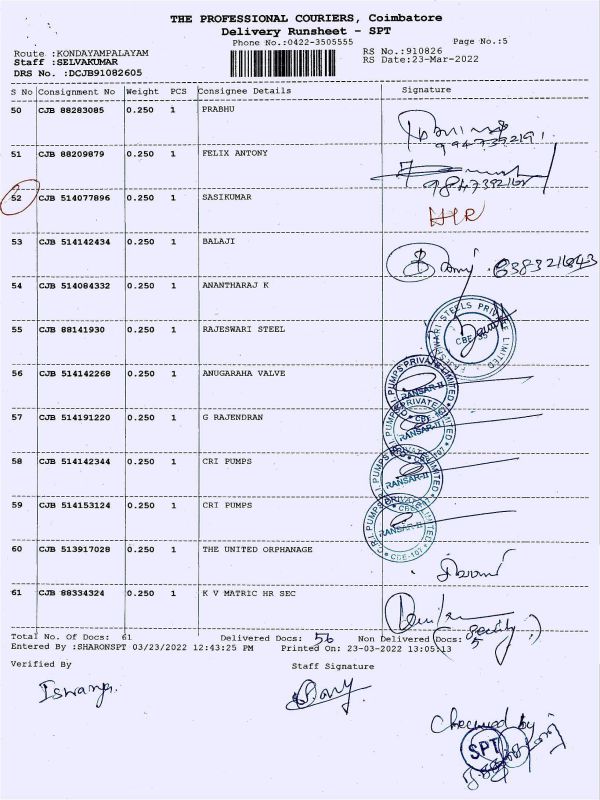 THE PROFESSIONAL COURIERS, Coimbatore
Delivery Runsheet - SPT
Phone No.:0422-3505555 Page No.:5
Route :KONDAYAMPALAYAM RS No.:910826
Staff :SELVAKUMAR RS Date:23-Mar-2022
DRS No. :DCJB91082605
S No Consignment No Weight PCS Consignee Details Signature
50 CJB 88283085 0.250 1 PRABHU
9947392191
51 CJB 88209879 0.250 1 FELIX ANTONY
9847392161
52 CJB 514077896 0.250 1 SASIKUMAR
53 CJB 514142434 0.250 1 BALAJI
54 CJB 514084332 0.250 1 ANANTHARAJ K
55 CJB 88141930 0.250 1 RAJESWARI STEEL
RAJESWARI STEELS PRIVATE LIMITED
CBE-35
56 CJB 514142268 0.250 1 ANUGARAHA VALVE
PUMPS PRIVATE LIMITED
RANSAR-II
57 CJB 514191220 0.250 1 G RAJENDRAN
RANSAR-II
58 CJB 514142344 0.250 1 CRI PUMPS
RANSAR-II
59 CJB 514153124 0.250 1 CRI PUMPS
C.R.I. PUMPS PRIVATE LIMITED
CBE-107
60 CJB 513917028 0.250 1 THE UNITED ORPHANAGE
61 CJB 88334324 0.250 1 K V MATRIC HR SEC
Security
Total No. Of Docs: 61 Delivered Docs: 56 Non Delivered Docs: 5
Entered By :SHARONSPT 03/23/2022 12:43:25 PM Printed On: 23-03-2022 13:05:13
Verified By Staff Signature
Checked by
SPT